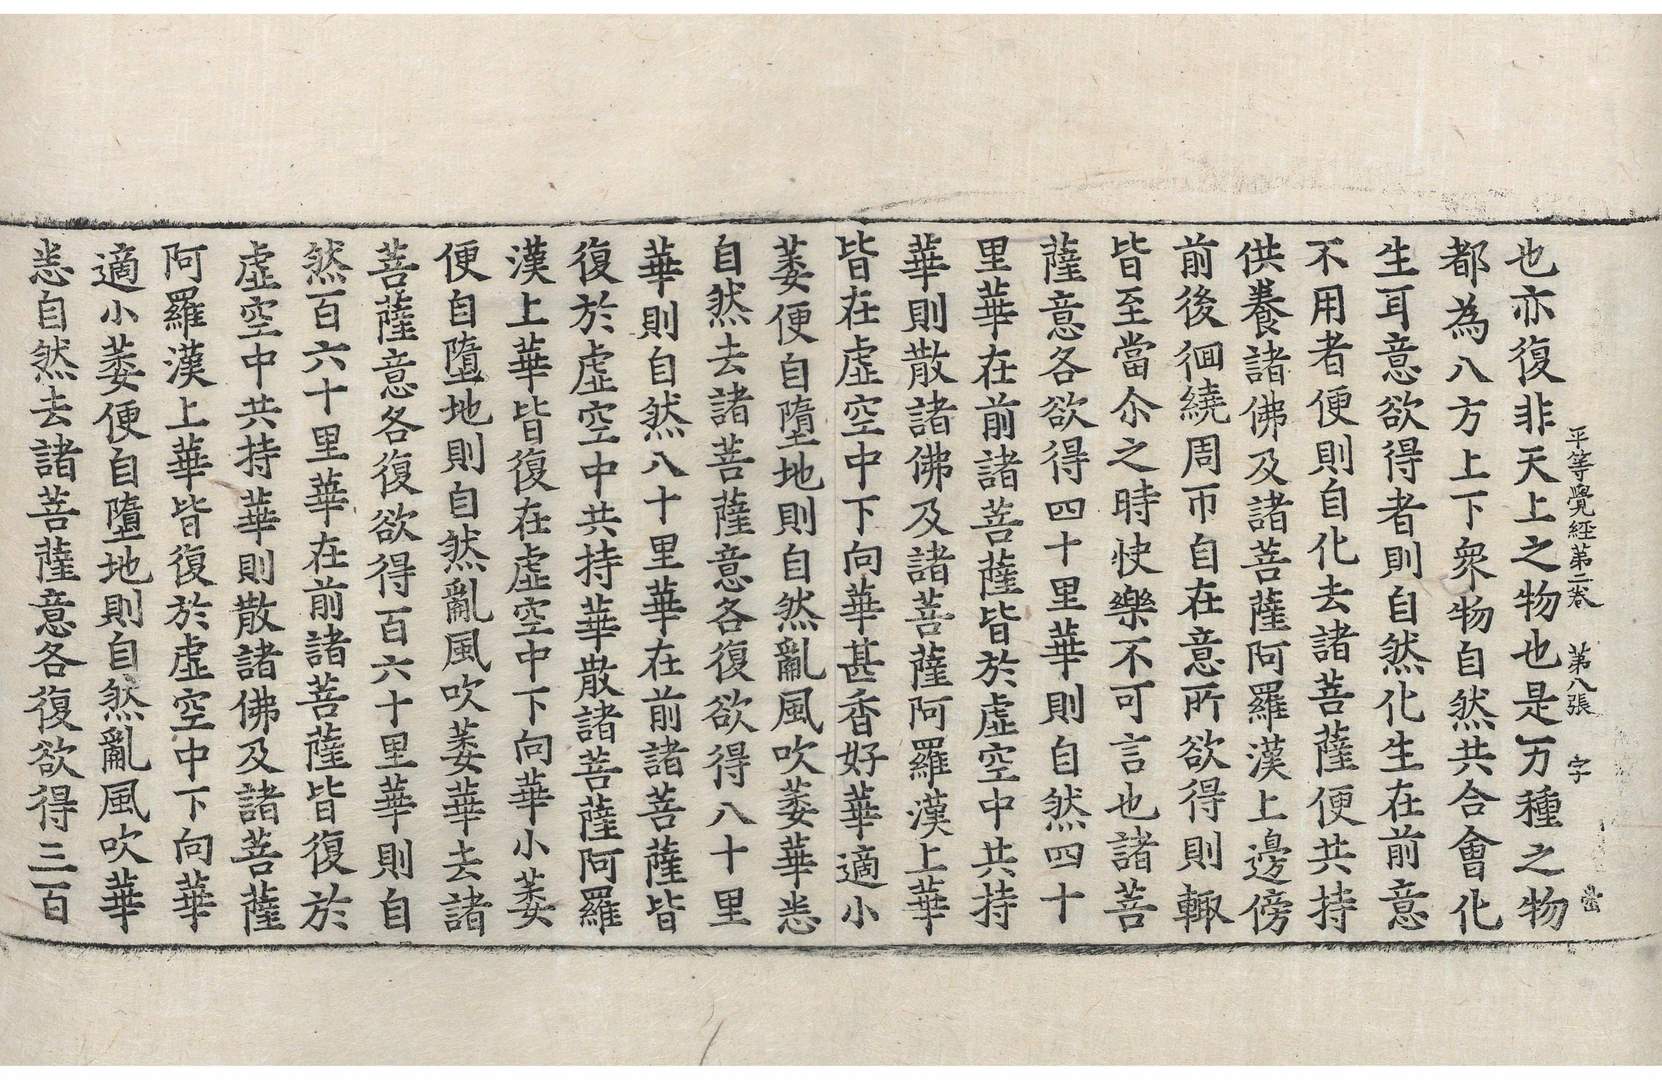 平等覺經第二卷 第八張 字
也亦復非天上之物也是万種之物
都為八方上下衆物自然共合會化
生耳意欲得者則自然化生在前意
不用者便則自化去諸菩薩便共持
供養諸佛及諸菩薩阿羅漢上邊傍
前後徊繞周帀自在意所欲得則輙
皆至當尒之時快樂不可言也諸菩
薩意各欲得四十里華則自然四十
里華在前諸菩薩皆於虛空中共持
華則散諸佛及諸菩薩阿羅漢上華
皆在虛空中下向華甚香好華適小
萎便自墮地則自然亂風吹萎華悉
自然去諸菩薩意各復欲得八十里
華則自然八十里華在前諸菩薩皆
復於虛空中共持華散諸菩薩阿羅
漢上華皆復在虛空中下向華小萎
便自墮地則自然亂風吹萎華去諸
菩薩意各復欲得百六十里華則自
然百六十里華在前諸菩薩皆復於
虛空中共持華則散諸佛及諸菩薩
阿羅漢上華皆復於虛空中下向華
適小萎便自墮地則自然亂風吹華
悉自然去諸菩薩意各復欲得三百